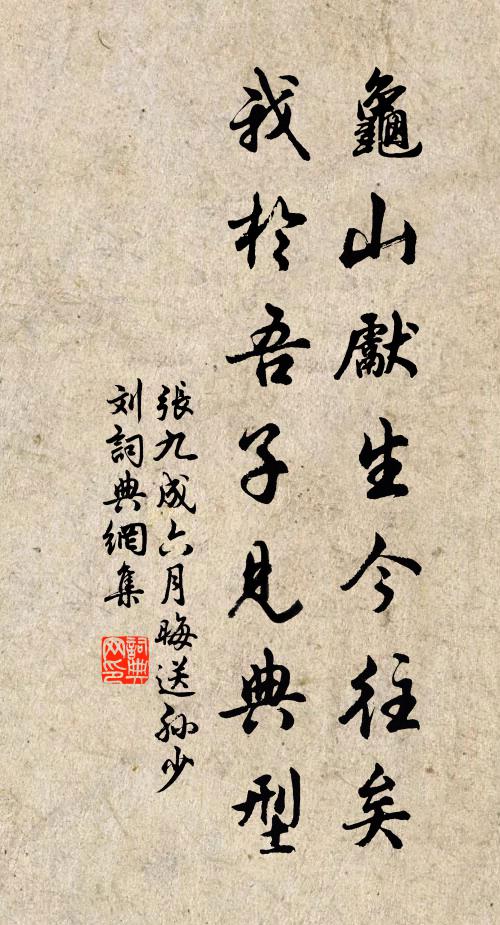 龜山獻生今往矣
我於吾子見典型
張九成六月晦送孙少
刘詞典網集
詞典
网印